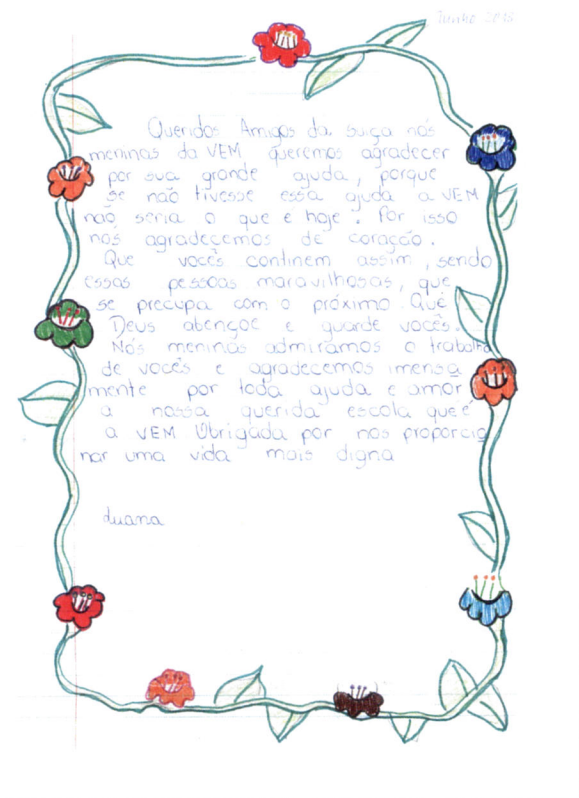 Junho 2015
Queridos Amigos da suiça nós
meninas da VEM queremos agradecer
por sua grande ajuda, porque
se não tivesse essa ajuda a VEM
não seria o que e hoje. Por isso
nós agradecemos de coração.
Que vocês continem assim, sendo
essas pessoas maravilhosas, que
se precupa com o próximo. Que
Deus abençoe e guarde vocês.
Nós meninas admiramos o trabalho
de vocês e agradecemos imensa
mente por toda ajuda e amor
a nossa querida escola que é
a VEM Obrigada por nos proporcio
nar uma vida mais digna
Luana